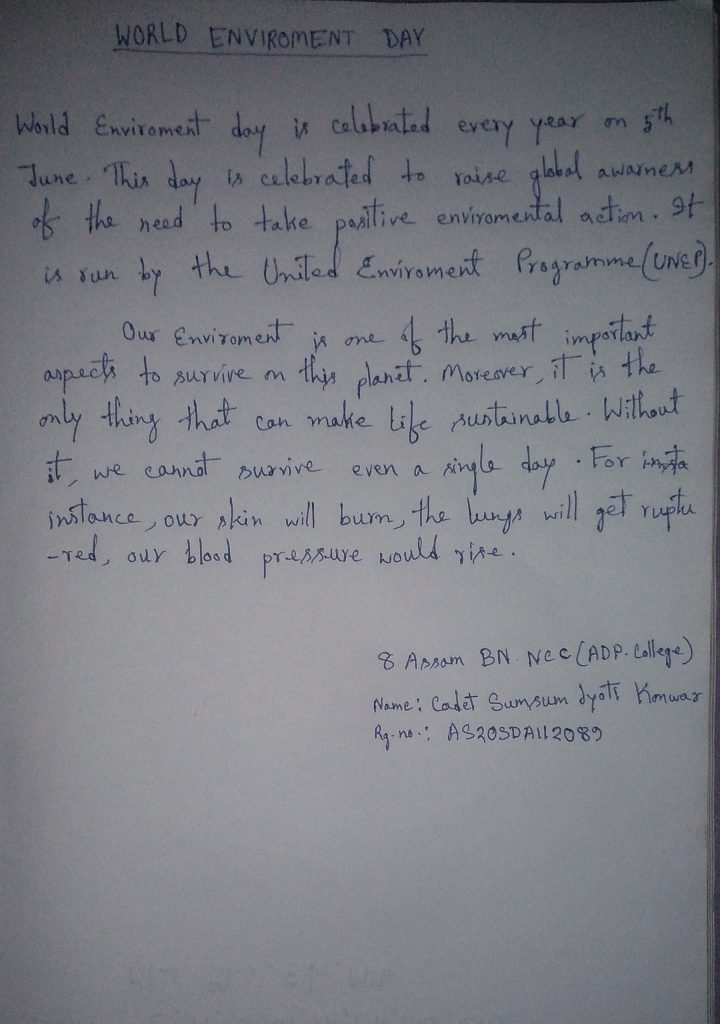 WORLD ENVIROMENT DAY
World Enviroment day is celebrated every year on 5th
June. This day is celebrated to raise global awarness
of the need to take positive enviromental action. It
is run by the United Enviroment Programme (UNEP).
Our Enviroment is one of the most important
aspects to survive on this planet. Moreover, it is the
only thing that can make life sustainable. Without
it, we cannot survive even a single day. For insta
instance, our skin will burn, the lungs will get ruptu
-red, our blood pressure would rise.
8 Assam BN NCC (ADP. College)
Name: Cadet Sumsum Jyoti Konwar
Rg. no.: AS20SDA112089